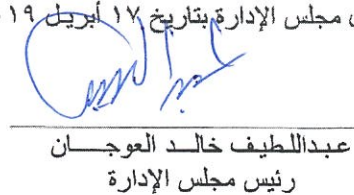 مجلس الإدارة بتاريخ ١٧ أبريل ١٩
عبداللطيف خالد العوجان
رئيس مجلس الإدارة